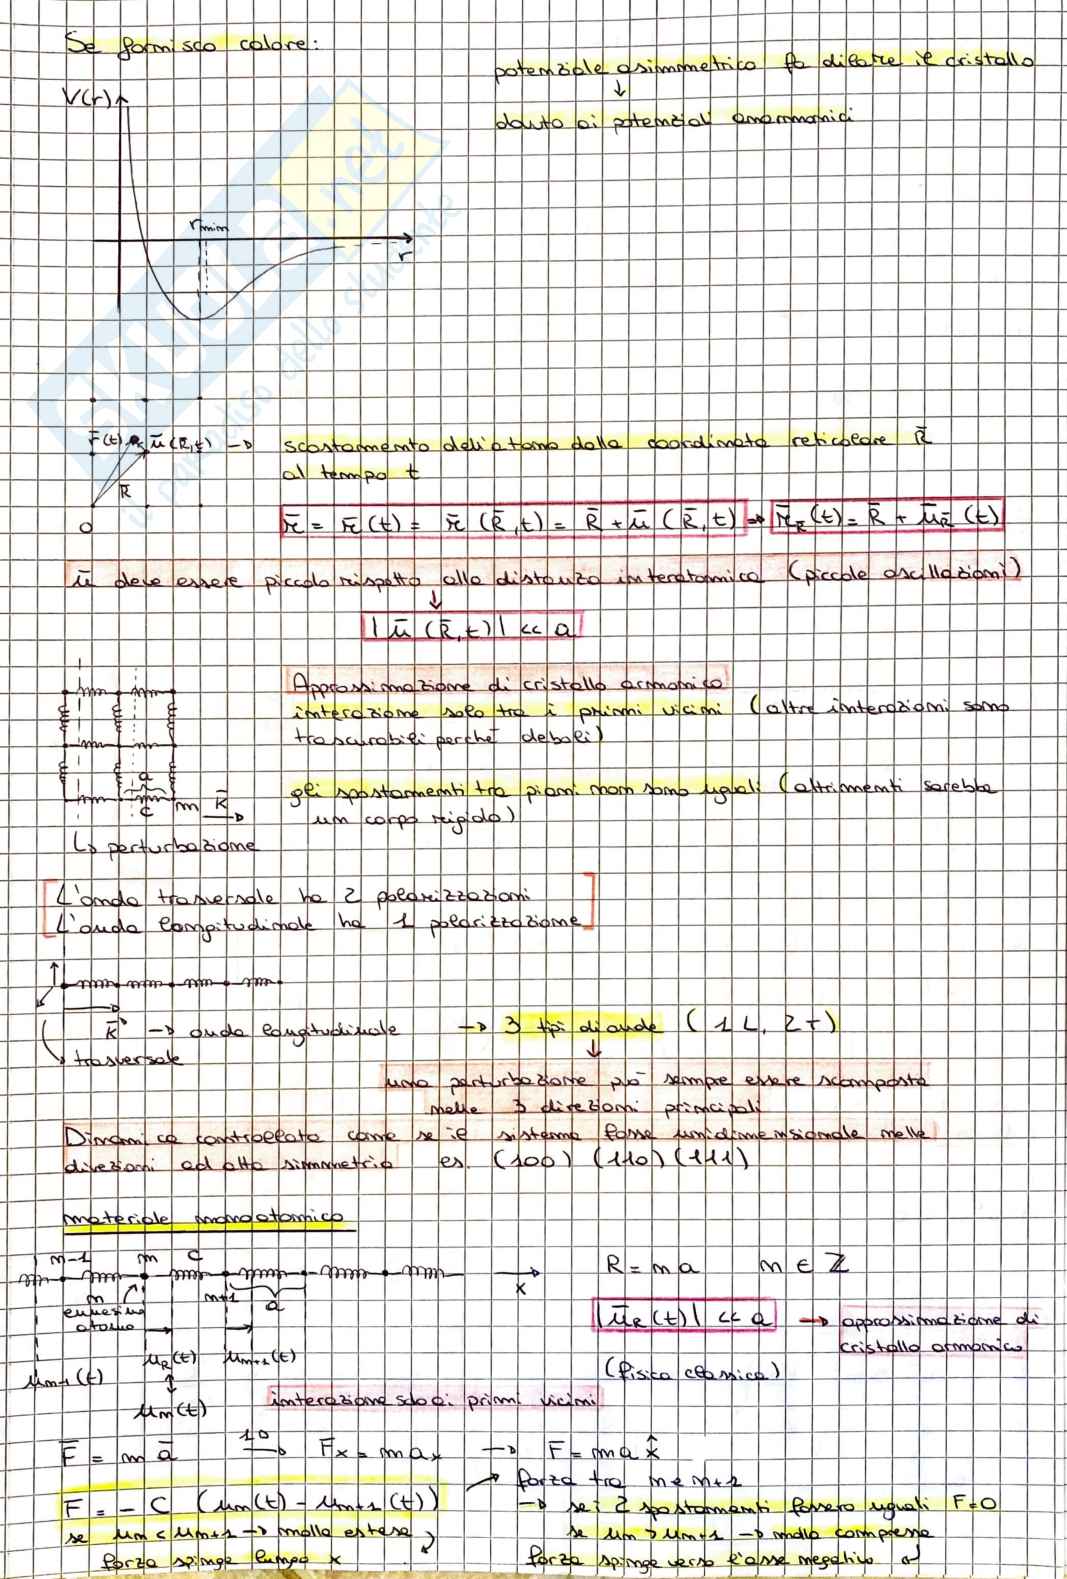 Se fornisco calore:
potenziale asimmetrico fa dilatare il cristallo
↓
dovuto ai potenziali anarmonici
V(r)
r min
r
skuola.net
il paradiso dello studente
r̄(t) ū(R̄,t) → scostamento dell'atomo dalla coordinata reticolare R̄
al tempo t
R̄
O
r̄ = r̄(t) = r̄(R̄,t) = R̄ + ū(R̄,t) ⇒ r̄_R̄(t) = R̄ + ū_R̄(t)
ū deve essere piccolo rispetto alla distanza interatomica (piccole oscillazioni)
↓
|ū(R̄,t)| << a
Approssimazione di cristallo armonico
interazione solo tra i primi vicini (altre interazioni sono
trascurabili perché deboli)
a
C
m
K̄
gli spostamenti tra piani non sono uguali (altrimenti sarebbe
un corpo rigido)
↳ perturbazione
[L'onda trasversale ha 2 polarizzazioni
L'onda longitudinale ha 1 polarizzazione]
K̄ → onda longitudinale → 3 tipi di onde (1L, 2T)
trasversale
↓
una perturbazione può sempre essere scomposta
nelle 3 direzioni principali
Dinamica controllata come se il sistema fosse unidimensionale nelle
direzioni ad alta simmetria es. (100) (110) (111)
materiale monoatomico
n-1 n C
m
ennesimo
atomo
n+1
a
x
R = na n ∈ ℤ
|ū_R(t)| << a → approssimazione di
cristallo armonico
(fisica classica)
u_n-1(t)
u_R(t) u_n+1(t)
↕
u_n(t)
interazione solo ai primi vicini
F̄ = m ā 1D → F_x = m a_x → F̄ = m a x̂
F = - C (u_n(t) - u_n+1(t))
forza tra n e n+1
→ se i 2 spostamenti fossero uguali F=0
se u_n < u_n+1 → molla estesa
forza spinge lungo x
se u_n > u_n+1 → molla compressa
forza spinge verso l'asse negativo